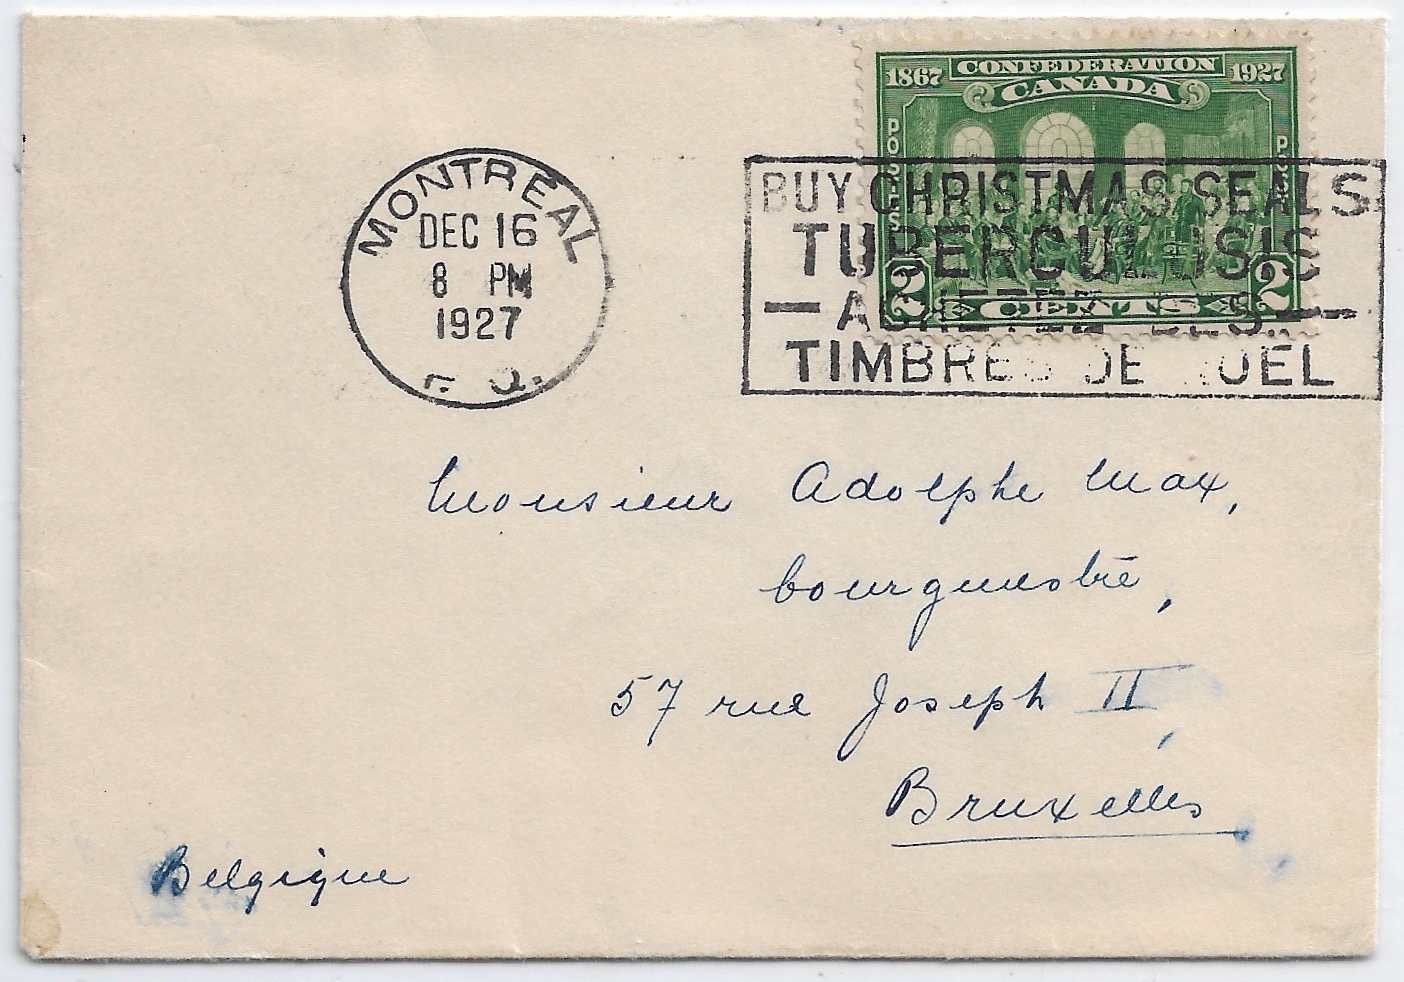 1867 CONFEDERATION 1927
CANADA
POSTES
2 CENTS 2
MONTREAL
DEC 16
8 PM
1927
P. Q.
BUY CHRISTMAS SEALS
TUBERCULOSIS
— ACHETEZ DES —
TIMBRES DE NOEL
Monsieur Adolphe Max,
bourgmestre,
57 rue Joseph II,
Bruxelles
Belgique